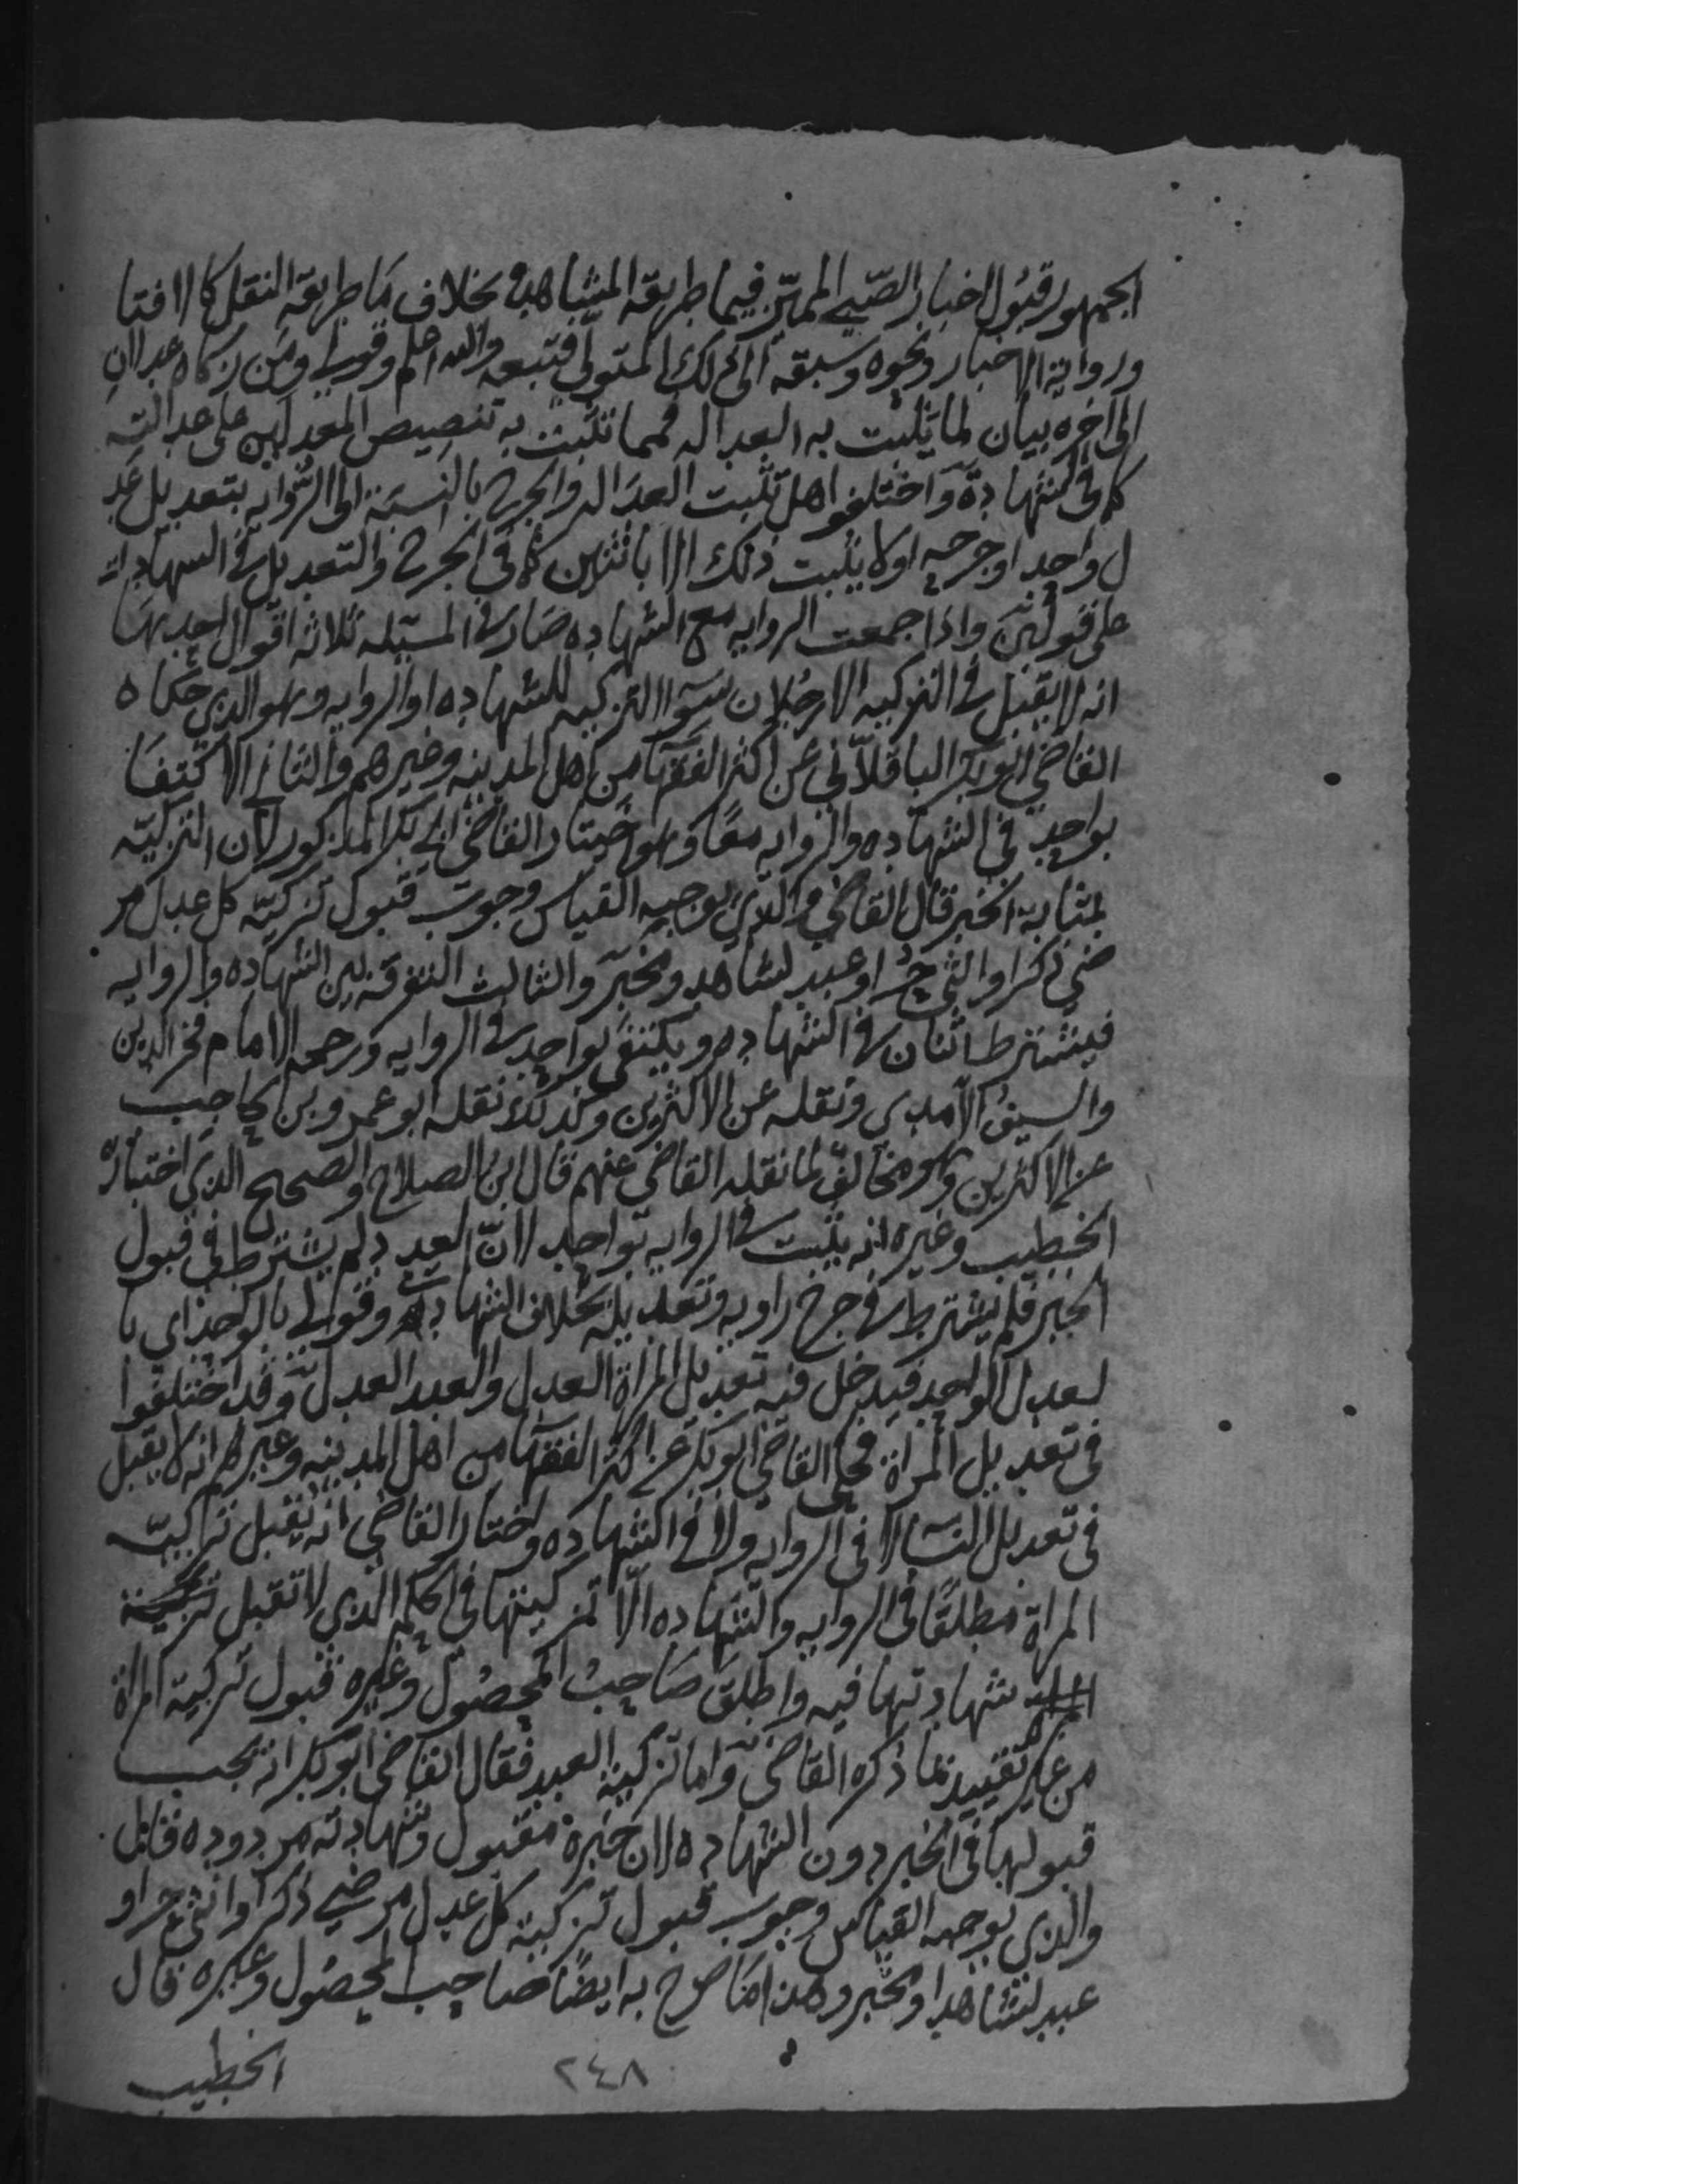 الجمهور قبول اخبار الصبي المميز فيما طريقه المشاهدة بخلاف ما طريقه النقل كالافتا
ورواية الاخبار ونحوه وسبقه الى ذلك المتولي فتبعه والله اعلم وقولي ومن زكاه عدلان
الى اخره بيان لما يثبت به العداله فمما تثبت به تنصيص المعدلين على عدالته
كما في الشهادة واختلفوا هل تثبت العداله والجرح بالنسبة الى الروايه بتعديل عد
ل واحد او جرحه او لا يثبت ذلك الا باثنين كما في الجرح والتعديل في الشهادات
على قولين واذا جمعت الروايه مع الشهاده صار في المسئله ثلاثه اقوال احدها
انه لا يقبل في التزكيه الا رجلان سوا التزكيه للشهاده او الروايه وهو الذي حكاه
القاضي ابو بكر الباقلاني عن اكثر الفقها من اهل المدينه وغيرهم والثاني الاكتفا
بواحد في الشهاده والروايه معا وهو اختيار القاضي ابي بكر المذكور لان التزكيه
بمثابة الخبر قال القاضي والذي يوجبه القياس وجوب قبول تزكيه كل عدل مر
ضي ذكر او انثى حر او عبد لشاهد ومخبر والثالث التفرقه بين الشهاده والروايه
فيشترط اثنان في الشهاده ويكتفى بواحد في الروايه ورجحه الامام فخر الدين
والسيف الآمدي ونقله عن الاكثرين وكذلك نقله ابو عمرو بن الحاجب
عن الاكثرين وهو مخالف لما نقله القاضي عنهم قال ابن الصلاح والصحيح الذي اختاره
الخطيب وغيره انه يثبت في الروايه بواحد لان العدد لم يشترط في قبول
الخبر فلم يشترط في جرح راويه وتعديله بخلاف الشهادات وقولي بالواحد اي با
لعدل الواحد فيدخل فيه تعديل المراة العدل والعبد العدل وقد اختلفوا
في تعديل المراة فحكى القاضي ابو بكر عن اكثر الفقها من اهل المدينه وغيرهم انه لا يقبل
في تعديل النسا لا في الروايه ولا في الشهاده واختار القاضي انه يقبل تزكية
المراة مطلقا في الروايه والشهاده الا تزكيتها في الحكم الذي لا تقبل
شهادتها فيه واطلق صاحب المحصول وغيره قبول تزكية المراة
من غير تقييد بما ذكره القاضي واما تزكية العبد فقال القاضي ابو بكر انه يجب
قبولها في الخبر دون الشهاده لان خبره مقبول وشهادته مردوده قال
والذي يوجبه القياس وجوب قبول تزكية كل عدل مرضي ذكر او انثى حر او
عبد لشاهد او مخبر وهذا ما صرح به ايضا صاحب المحصول وغيره قال
الخطيب
٢٤٨